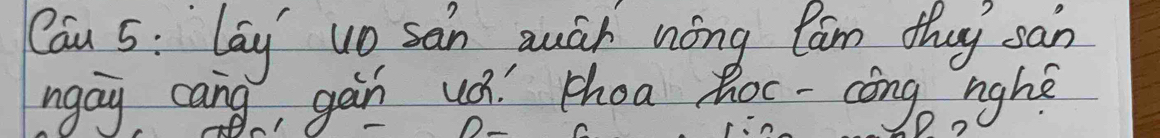 Câu 5: Lấy VD sản xuất nông lâm thuỷ sản
ngày càng gắn với khoa học - công nghệ